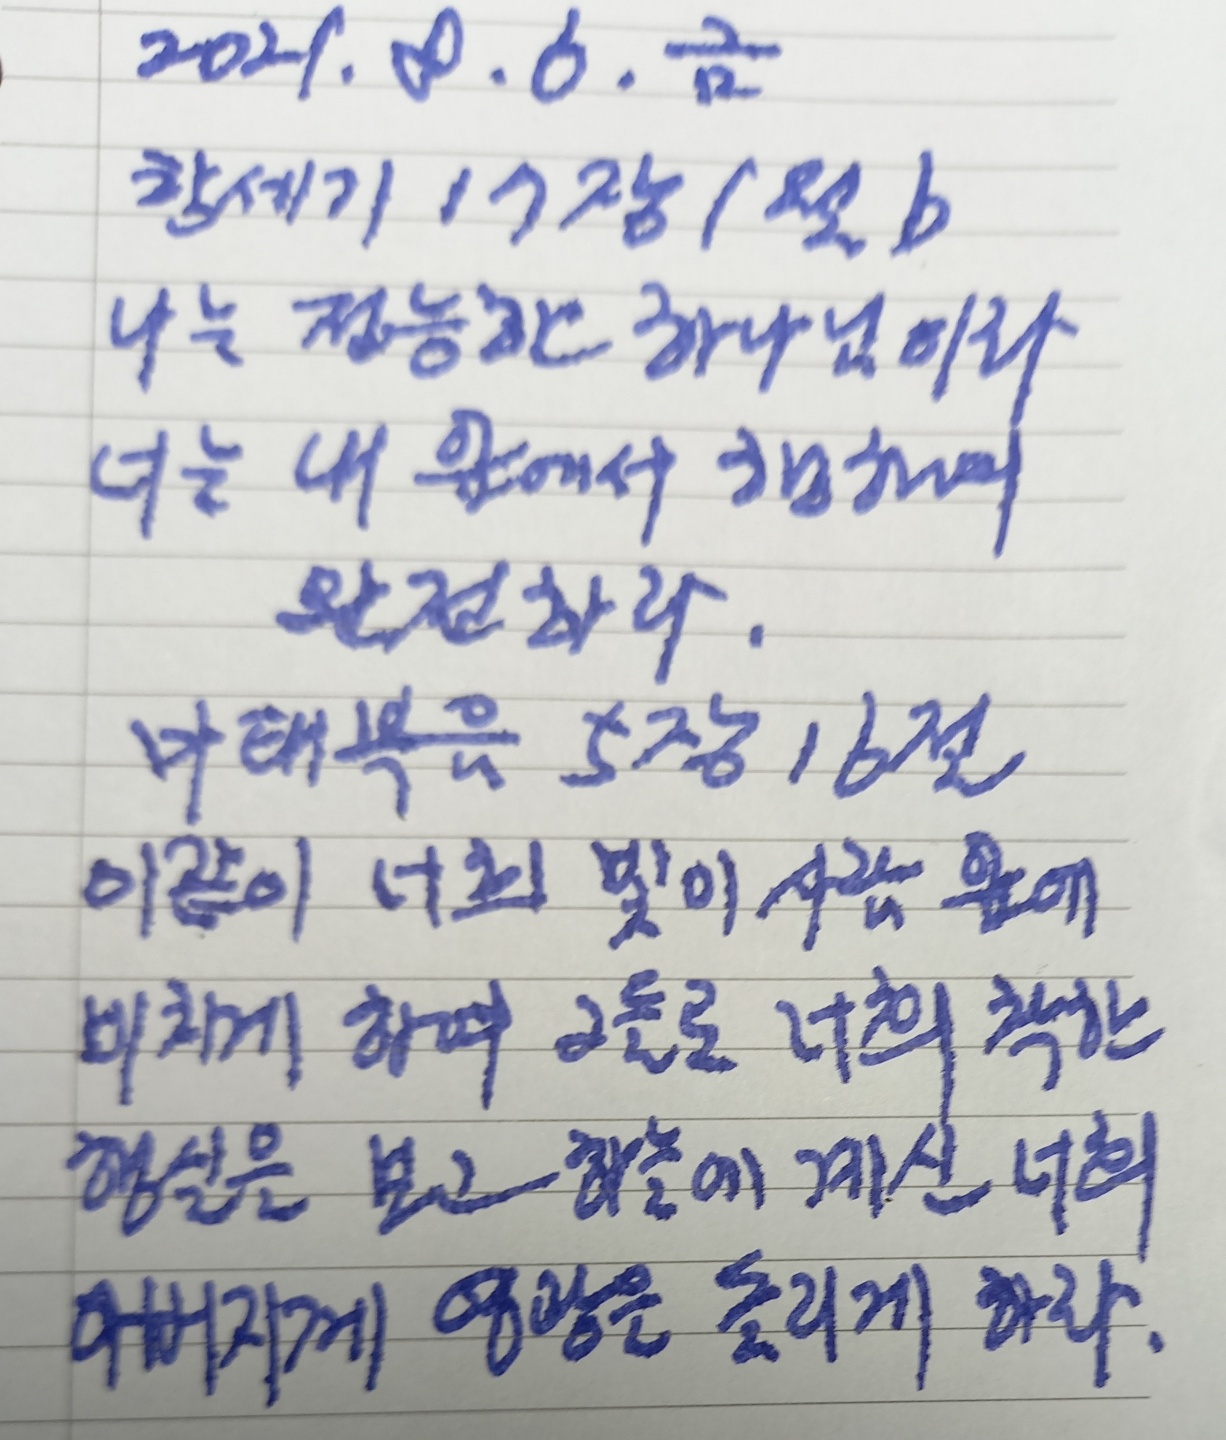 2021. 8. 6. 금
창세기 17장 1절 b
나는 전능한 하나님이라
너는 내 앞에서 행하여
완전하라.
마태복음 5장 16절
이같이 너희 빛이 사람 앞에
비치게 하여 그들로 너희 착한
행실을 보고 하늘에 계신 너희
아버지께 영광을 돌리게 하라.